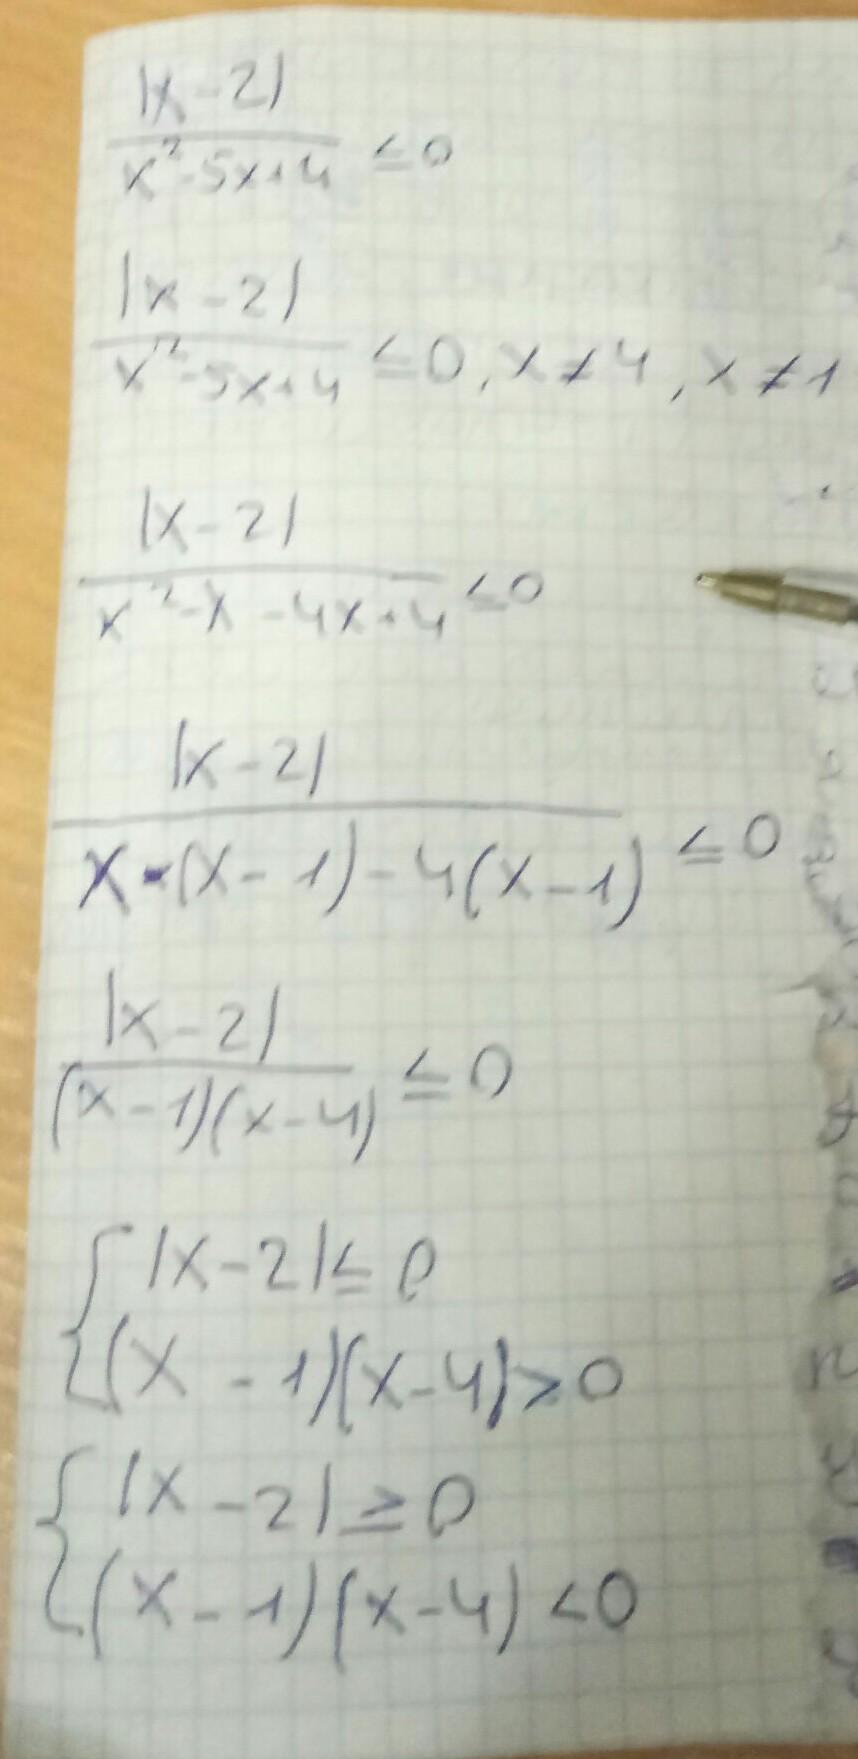 |x-2|
x²-5x+4 ≤0
|x-2|
x²-5x+4 ≤0, x≠4, x≠1
|x-2|
x²-x-4x+4 ≤0
|x-2|
x·(x-1)-4(x-1) ≤0
|x-2|
(x-1)(x-4) ≤0
{ |x-2|≤0
(x-1)(x-4)>0
{ |x-2|≥0
(x-1)(x-4)<0